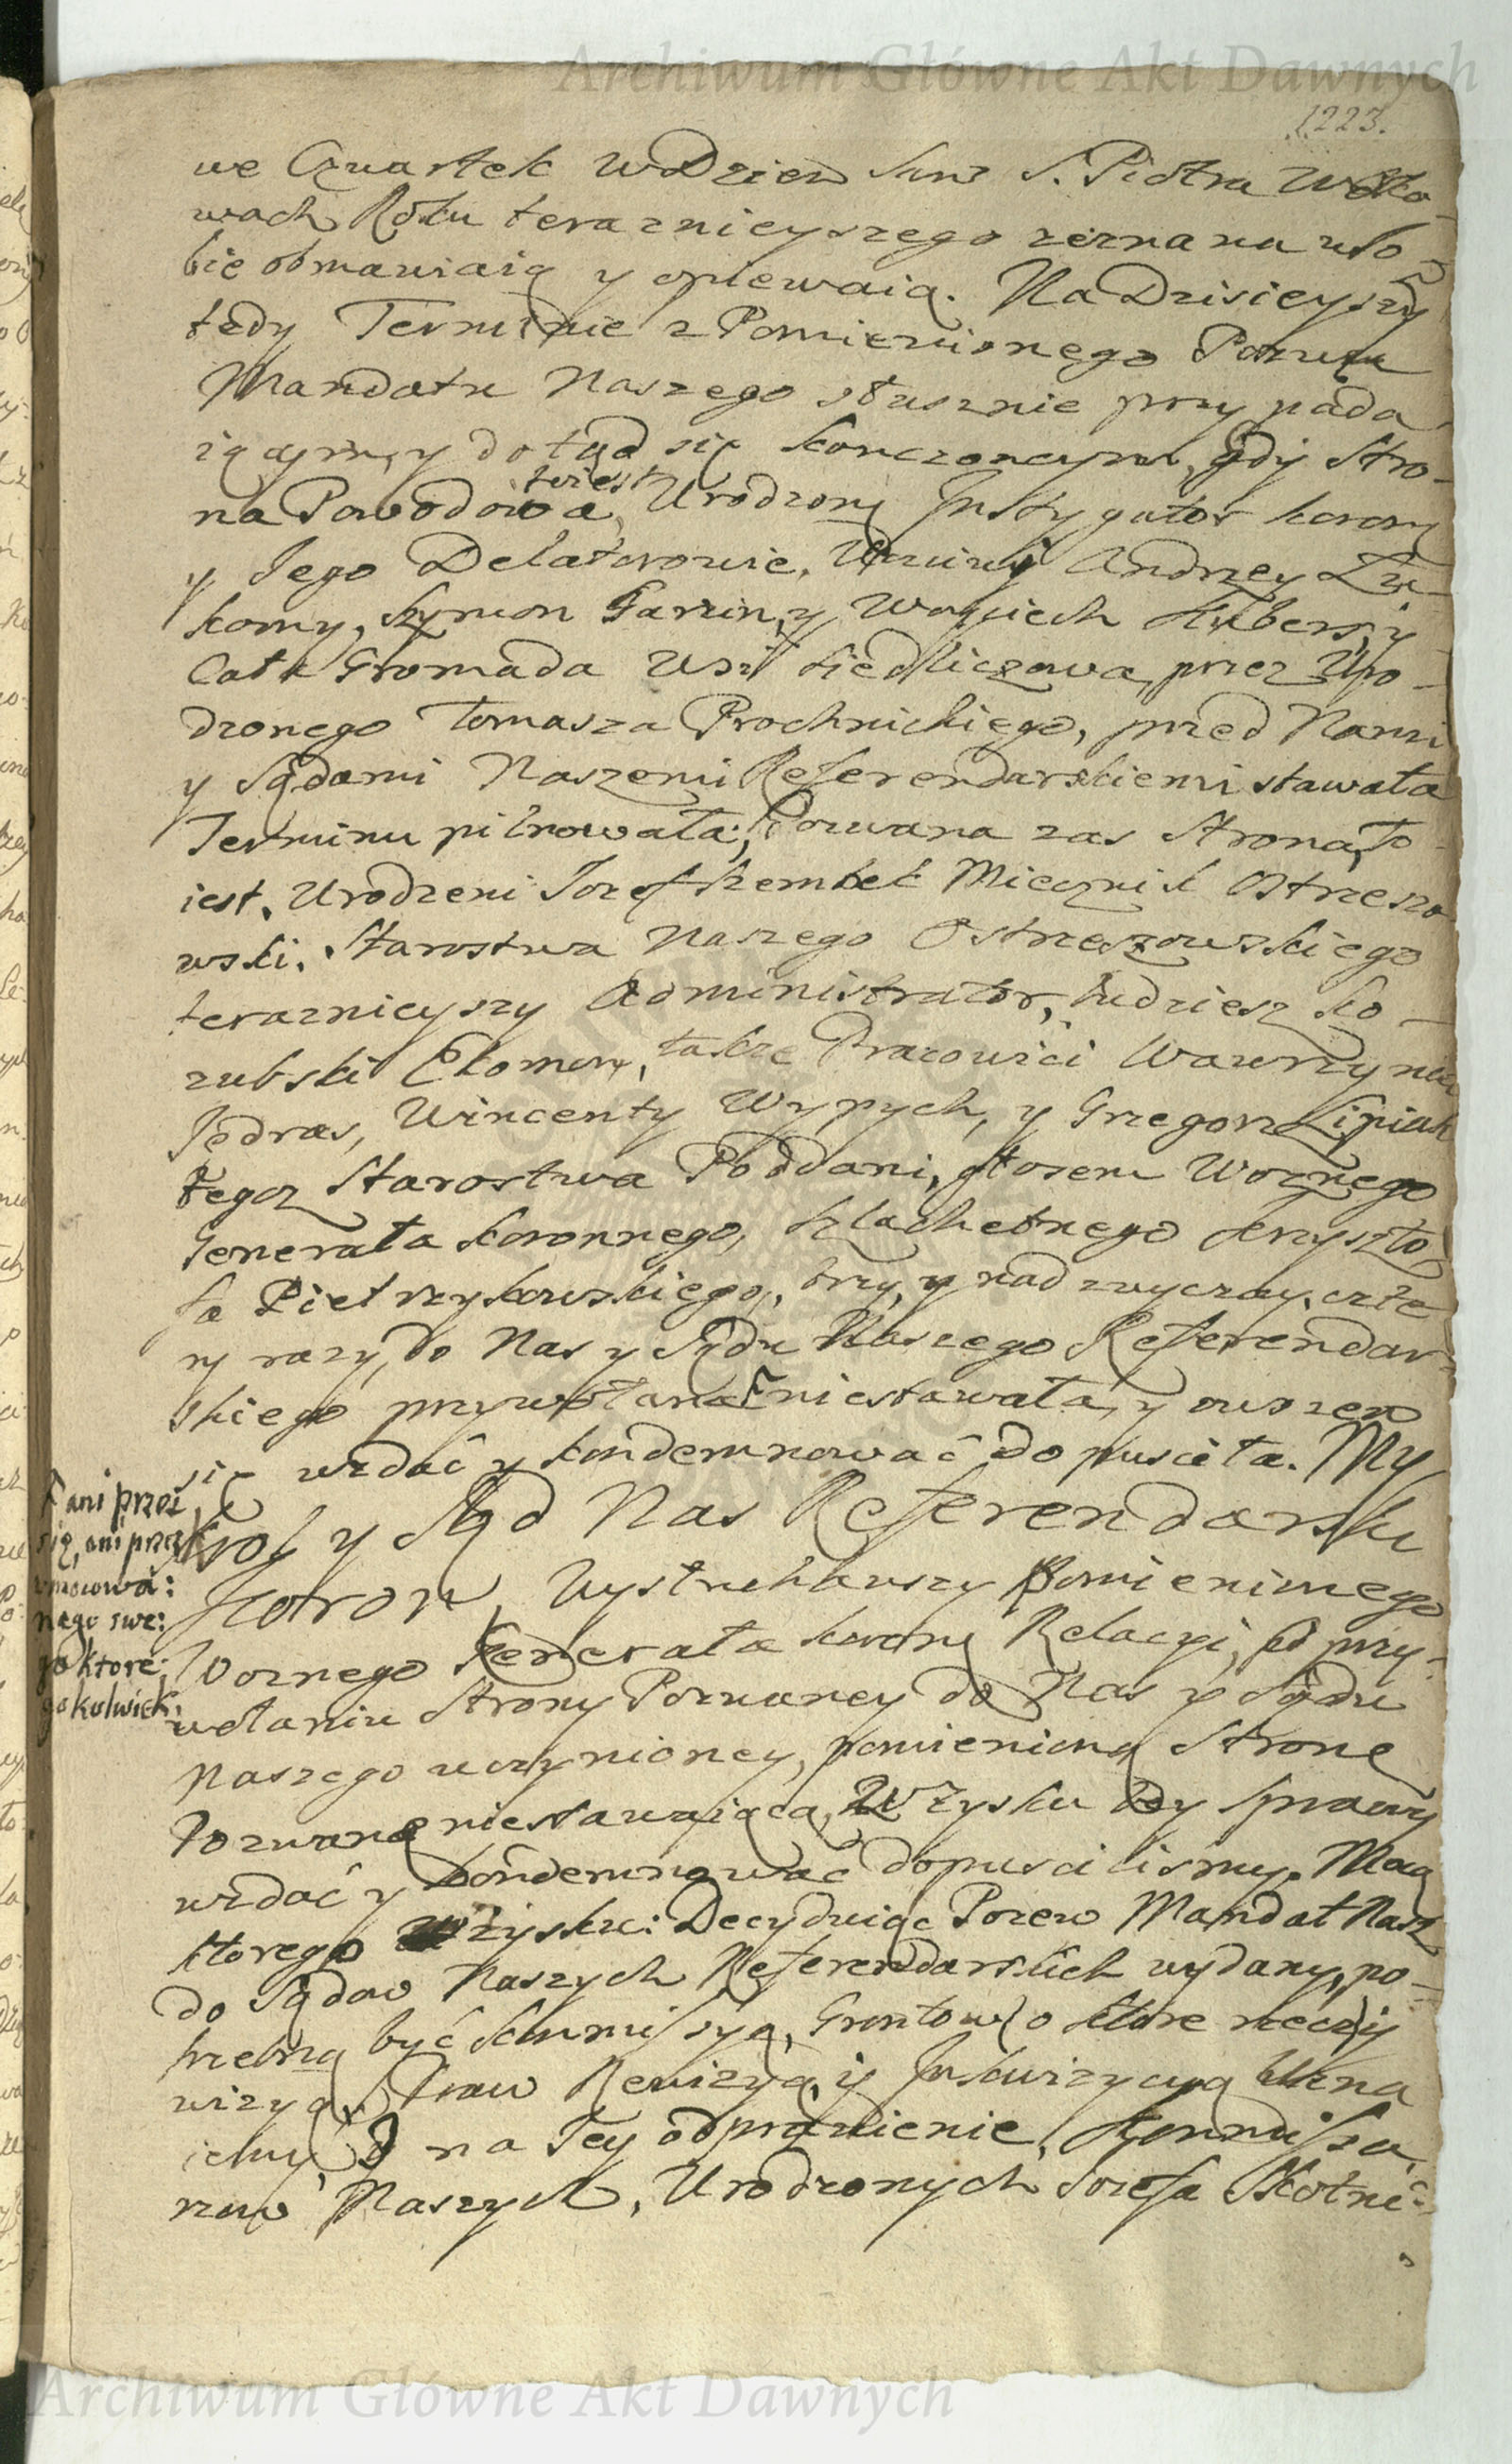 Archiwum Główne Akt Dawnych
1223.
we Czwartek w Dzien S. Piotra w Oko-
wach Roku teraznieyszego zeznana w so-
bie obmawiaią y opiewaią. Na Dzisieyszym
tedy Terminie z Pomienionego Pozwu
Mandatu Naszego słusznie przypada-
iącym, y dotąd się konczoncym, gdy Stro-
na Powodowa, to iest Urodzony Instygator korony
y Jego Delatorowie, Uczciwi Andrzey Zu-
komy, Szymon Garzin, y Woyciech Hubers, y
Cała Gromada Wsi Siedliczowa, przez Uro-
dzonego Tomasza Prochnickiego, przed Nami
y Sądami Naszemi Referendarskiemi stawała
Terminu pilnowała; Pozwana zas Strona, to
iest, Urodzeni Jozef Szembek Miecznik Ostrzeszo-
wski, Starostwa Naszego Ostrzeszowskiego
teraznieyszy Administrator, tudziesz Ko-
zubski Ekonom, także Pracowici Wawrzyniec
Jędras, Wincenty Wypych, y Grzegorz Lipiak
tegoz Starostwa Poddani, głosem Woznego
Generała koronnego, Szlachetnego Krzyszto-
fa Pietrzykowskiego, trzy, y nad zwyczay, czte-
ry razy, do Nas y Sądu Naszego Referendar-
skiego przywołana niestawała, y owszem
się wzdać y kondemnować dopusciła. My
Krol y Sąd Nas Referendarski
Koron, Wystuchawszy Pomienionego
Woznego Generała korony Relacyi, o przy-
wołaniu Strony Pozwaney do Nas y Sądu
Naszego uczynioney, pomienioną Stronę
Pozwaną niestawaiącą, W Zysku tey sprawy
wzdać y kondemnować dopuscilismy. Mocą
ktorego Wzysku: Decyduiąc Pozew Mandat Nasz
do Sądow Naszych Referendarskich wydany, po-
trzebną być Kommissyą, Grontow o ktore rzecz iż
wizyą, Praw Rewizyą, iż Inkwizycyą Uzna-
iemy, I na Tey odprawienie, Kommissa-
rzow Naszych, Urodzonych Jozefa Skotni-
ani przez
się, ani przez
umocowa:
nego swe:
go ktore:
gokolwiek,
Archiwum Główne Akt Dawnych